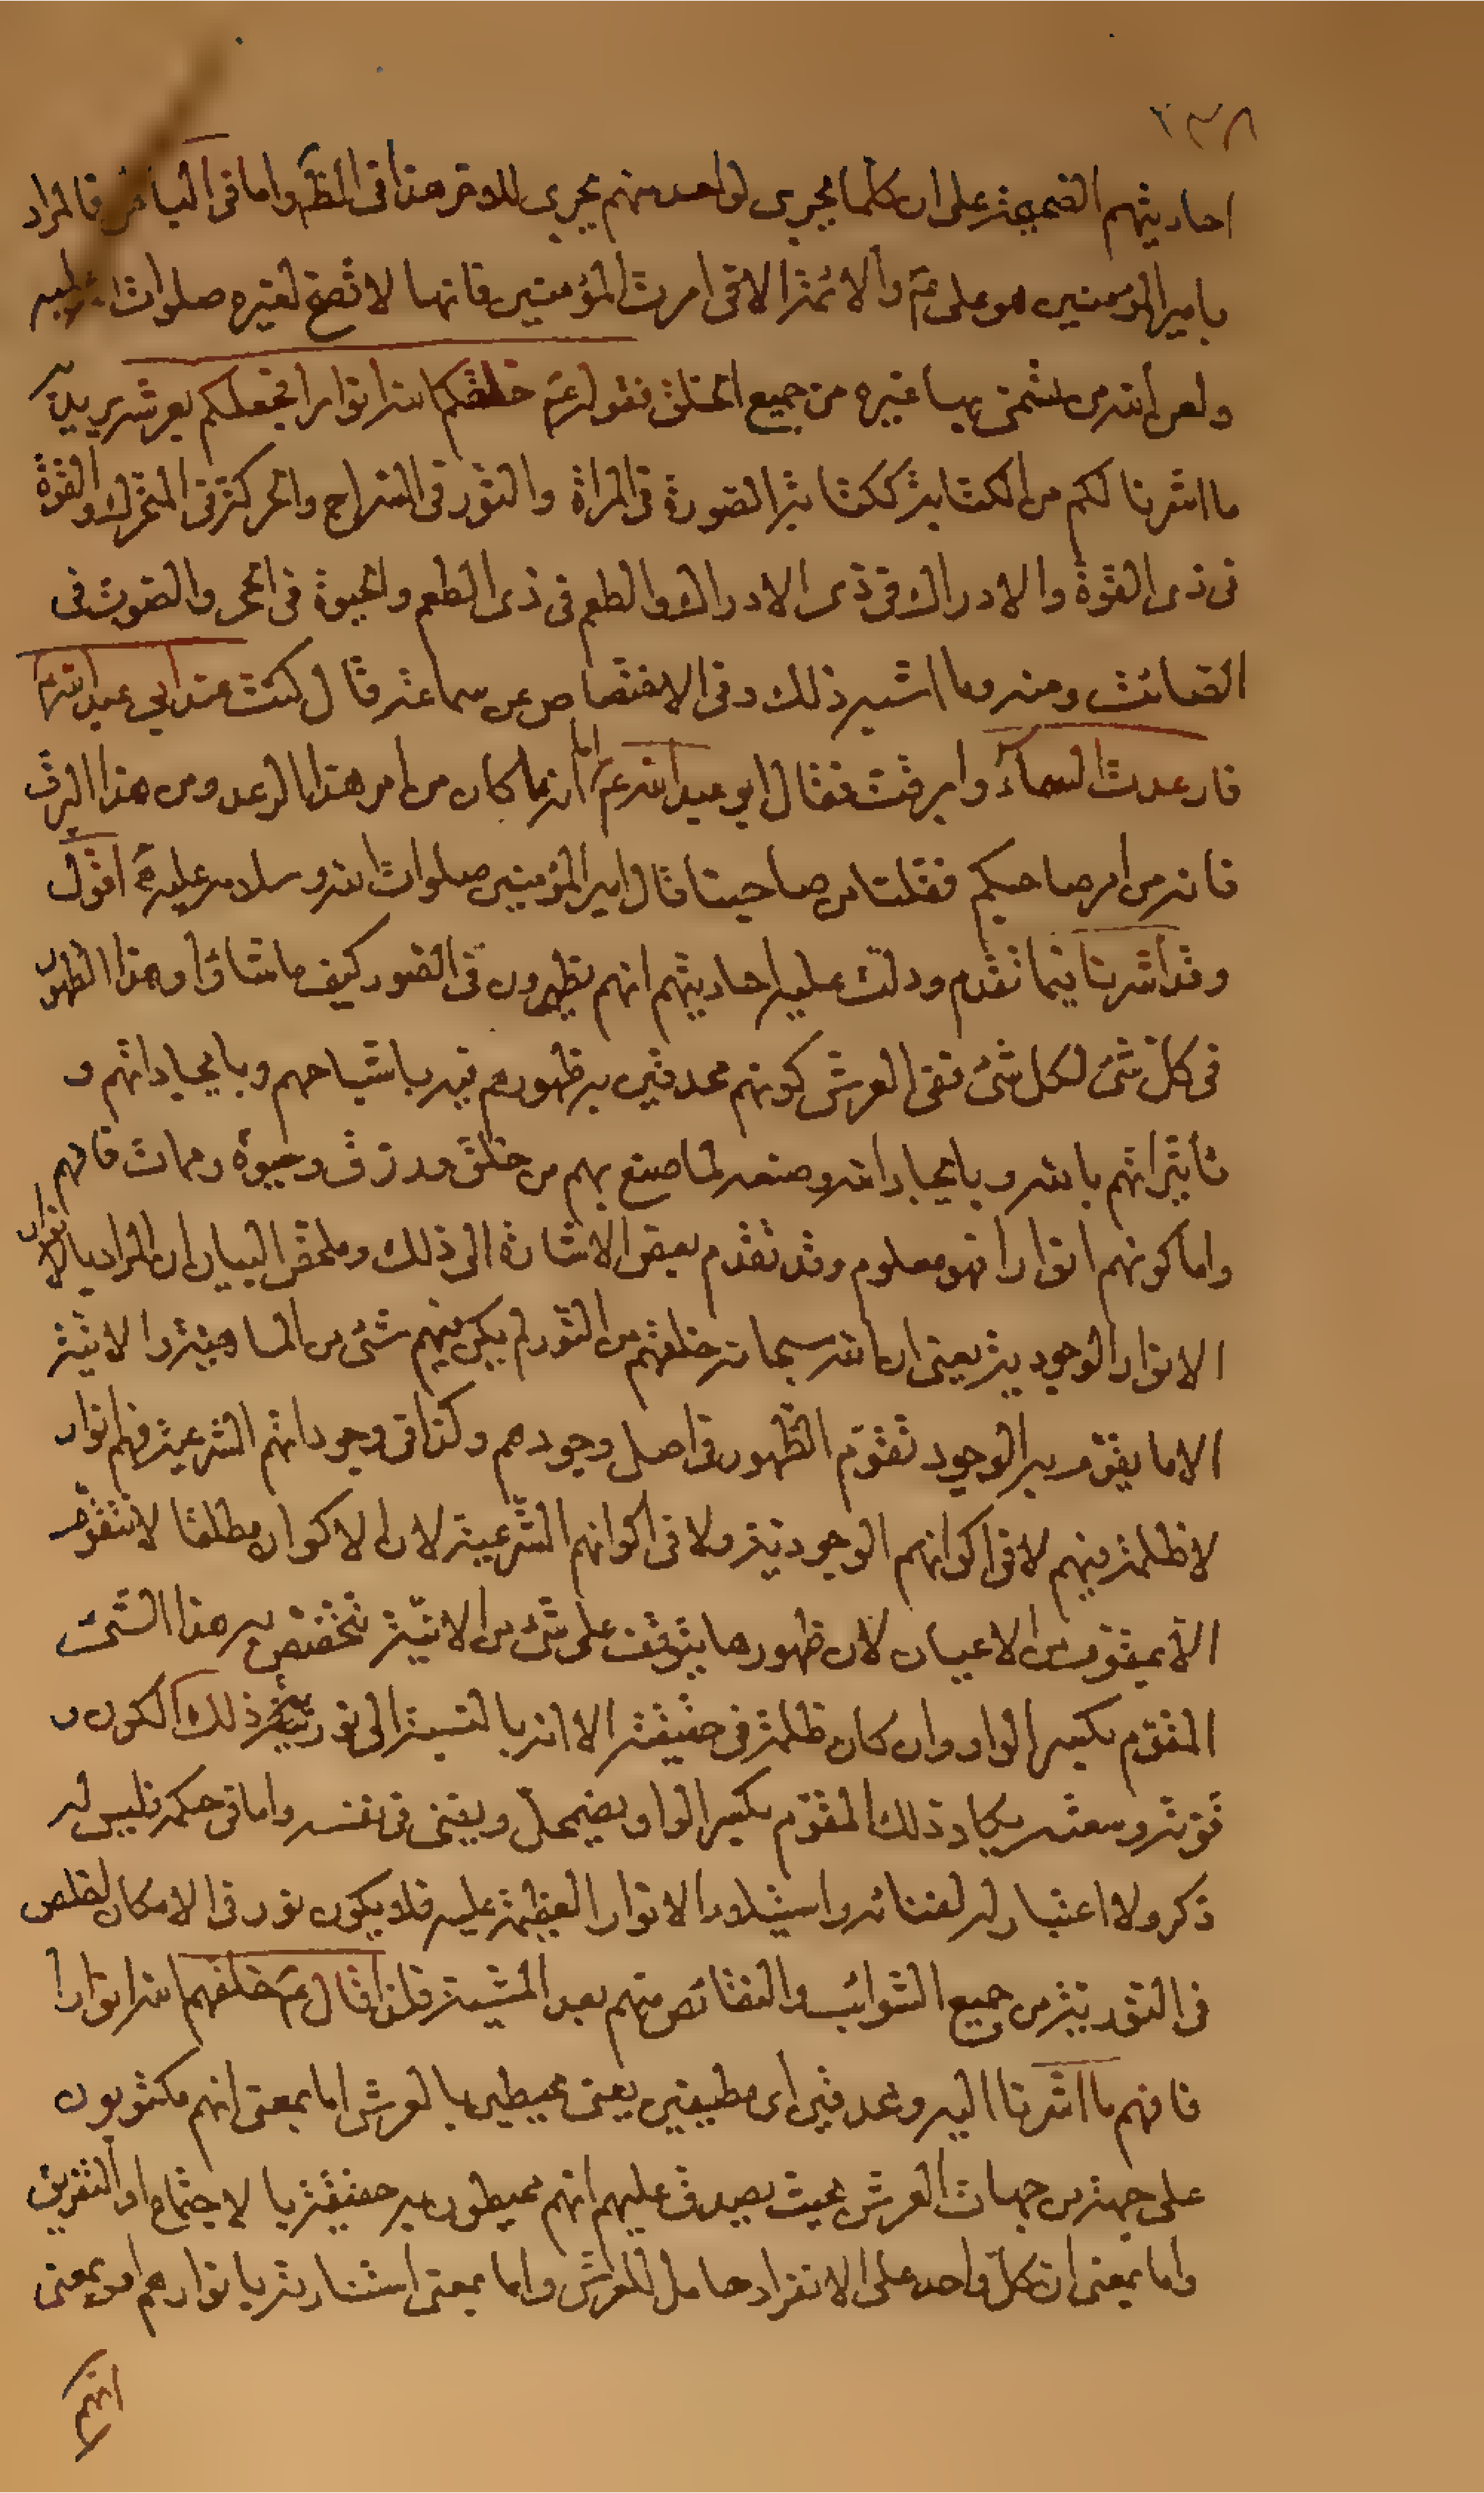 ٢٣٨
احاديثهم الصحيحة على ان كلما يجرى لواحد منهم يجرى للاخر هذا فى الظهر واما فى الباطن فالمراد
بامير المؤمنين هو على ع والائمة الا فى امرة المؤمنين فانها لا تصح لغيره صلوات الله عليه
ولعن الله من تسمى بها غيره من جميع الخلق فقوله ع خلقكم الله انوارا فجعلكم بعرشه يريد به
ما اشرنا لكم من الكتابة ككتابة الصورة فى المراة والنور فى السراج والحركة فى المتحرك والقوة
فى ذى القوة والادراك فى ذى الادراك والطعم فى ذى الطعم والحيوة فى الحى والصوت فى
الصائت ومنه وما اشبه ذلك وفى الاختصاص عن سماعة قال كنت عند ابي عبد الله ع
فارعدت السماء وابرقت فقال ابو عبد الله ع اما انه ما كان من امر هذا الرعد ومن هذا البرق
فانه من امر صاحبكم فقلنا من صاحبنا قال امير المؤمنين صلوات الله وسلامه عليه اقول
وقد اشرنا فيما تقدم ودلت عليه احاديثهم انهم يظهرون فى الصور كيف ما شاؤا وهذا الظهور
فى كل شئ لكل شئ ففى العرش كونهم محدقين به ظهورهم فيه باشباحهم وبايجاداتهم و
تاثيراتهم بالله وبايجاد الله وصنعه لما صنع بهم من خلق ورزق وحيوة وممات فافهم
واما كونهم انوارا فهو معلوم وقد تقدم بعض الاشارة الى ذلك وملخص البيان ان المراد بالانوار
الانوار الوجودية يعنى ان الله سبحانه خلقهم من النور لم يكن فيهم شئ من الماهية والانية
الا ما يقوم به الوجود تقوم الظهور فى اصل وجودهم وكذا فى وجوداتهم الشرعية فهم انوار
لا ظلمة فيهم لا فى اكوانهم الوجودية ولا فى اكوانهم الشرعية لان الاكوان مطلقا لا تتقوم
الا بمقوم من الاعيان لان ظهورها يتوقف على شئ من الانية تختص به هذا الشئ
المقوم بكسر الواو وان كان ظلمة فى حقيقته الا انه بالنسبة الى نورية ذلك الكون و
قوته وسعته يكاد ذلك المقوم بكسر الواو يضمحل ويفنى فى نفسه واما فى حكمه فليس له
ذكر ولا اعتبار له لفنائه واستيلاء الانوار العظيمة عليه فلا يكون نور فى الامكان اخلص
فى النورية من جميع الشوائب والنقائص منهم بعد المشية فلذا قال ع خلقهم الله انوارا
فافهم ما اشرنا اليه ومحدقين اى مطيفين يعنى محيطين بالعرش اما بمعنى انهم مكتوبون
على جهة من جهات العرش بحيث يصدق عليهم انهم محيطون به حقيقة بالاجتماع او التفريق
واما بمعنى ان كل واحد على الانفراد حامل للعرش واما بمعنى استنارته بانوارهم او بمعنى
انهم